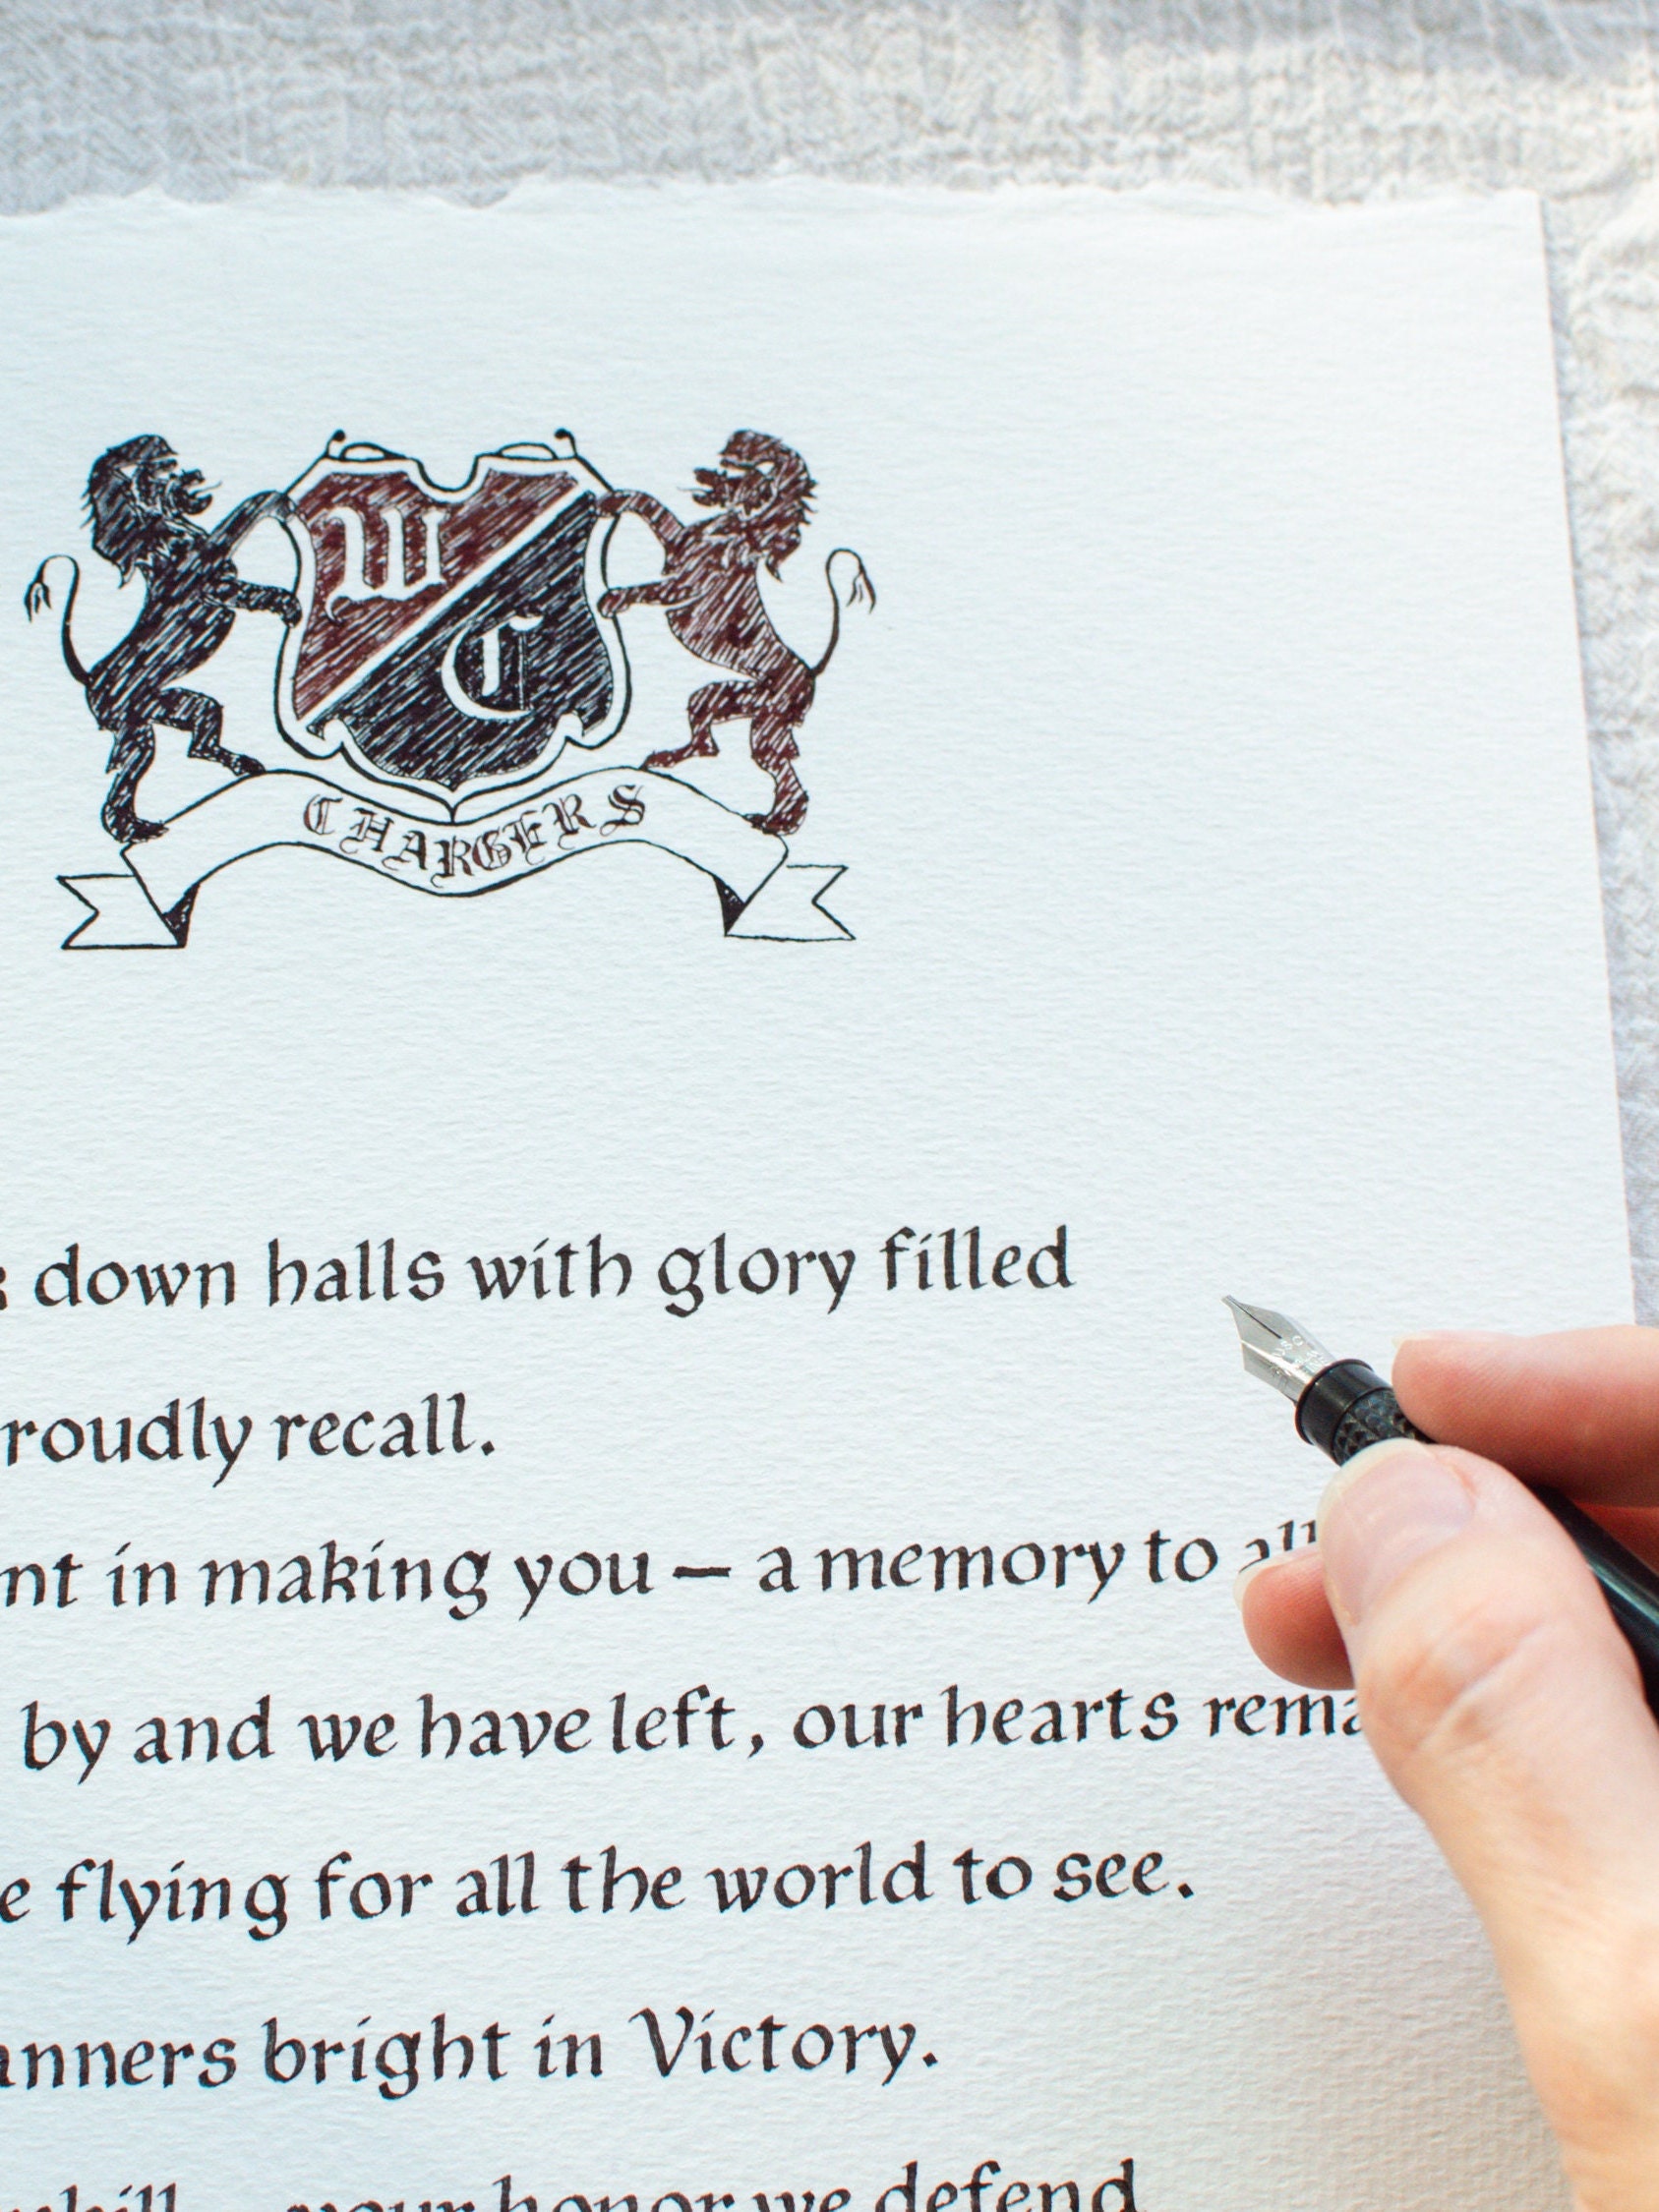 W
C
CHARGERS
down halls with glory filled
roudly recall.
nt in making you — a memory to all
by and we have left, our hearts rema
e flying for all the world to see.
anners bright in Victory.
hill your honor we defend